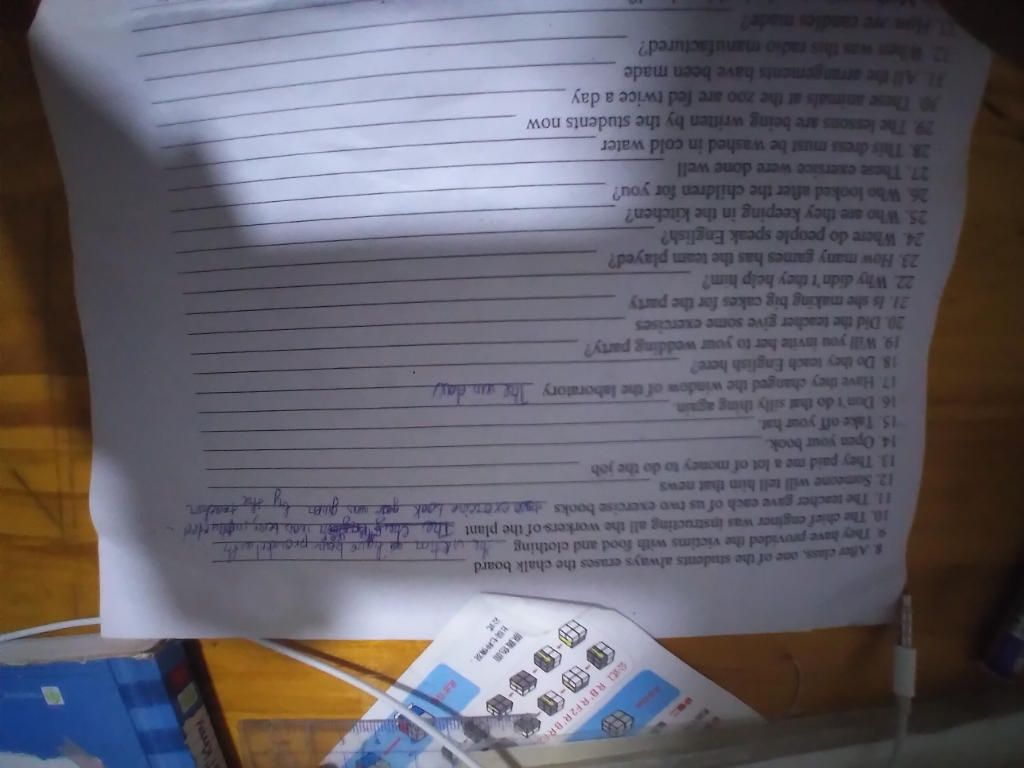 8. After class, one of the students always erases the chalk board
9. They have provided the victims with food and clothing The victim have been provided with
10. The chief enginer was instructing all the workers of the plant The
11. The teacher gave each of us two exercise books exercise book was given by the teacher
12. Someone will tell him that news
13. They paid me a lot of money to do the job
14. Open your book.
15. Take off your hat.
16. Don't do that silly thing again.
17. Have they changed the window of the laboratory The window
18. Do they teach English here?
19. Will you invite her to your wedding party?
20. Did the teacher give some exercises
21. Is she making big cakes for the party
22. Why didn't they help him?
23. How many games has the team played?
24. Where do people speak English?
25. Who are they keeping in the kitchen?
26. Who looked after the children for you?
27. These exersice were done well
28. This dress must be washed in cold water
29. The lessons are being written by the students now
30. These animals at the zoo are fed twice a day
31. All the arrangements have been made
32. When was this radio manufactured?
33. How are candles made?